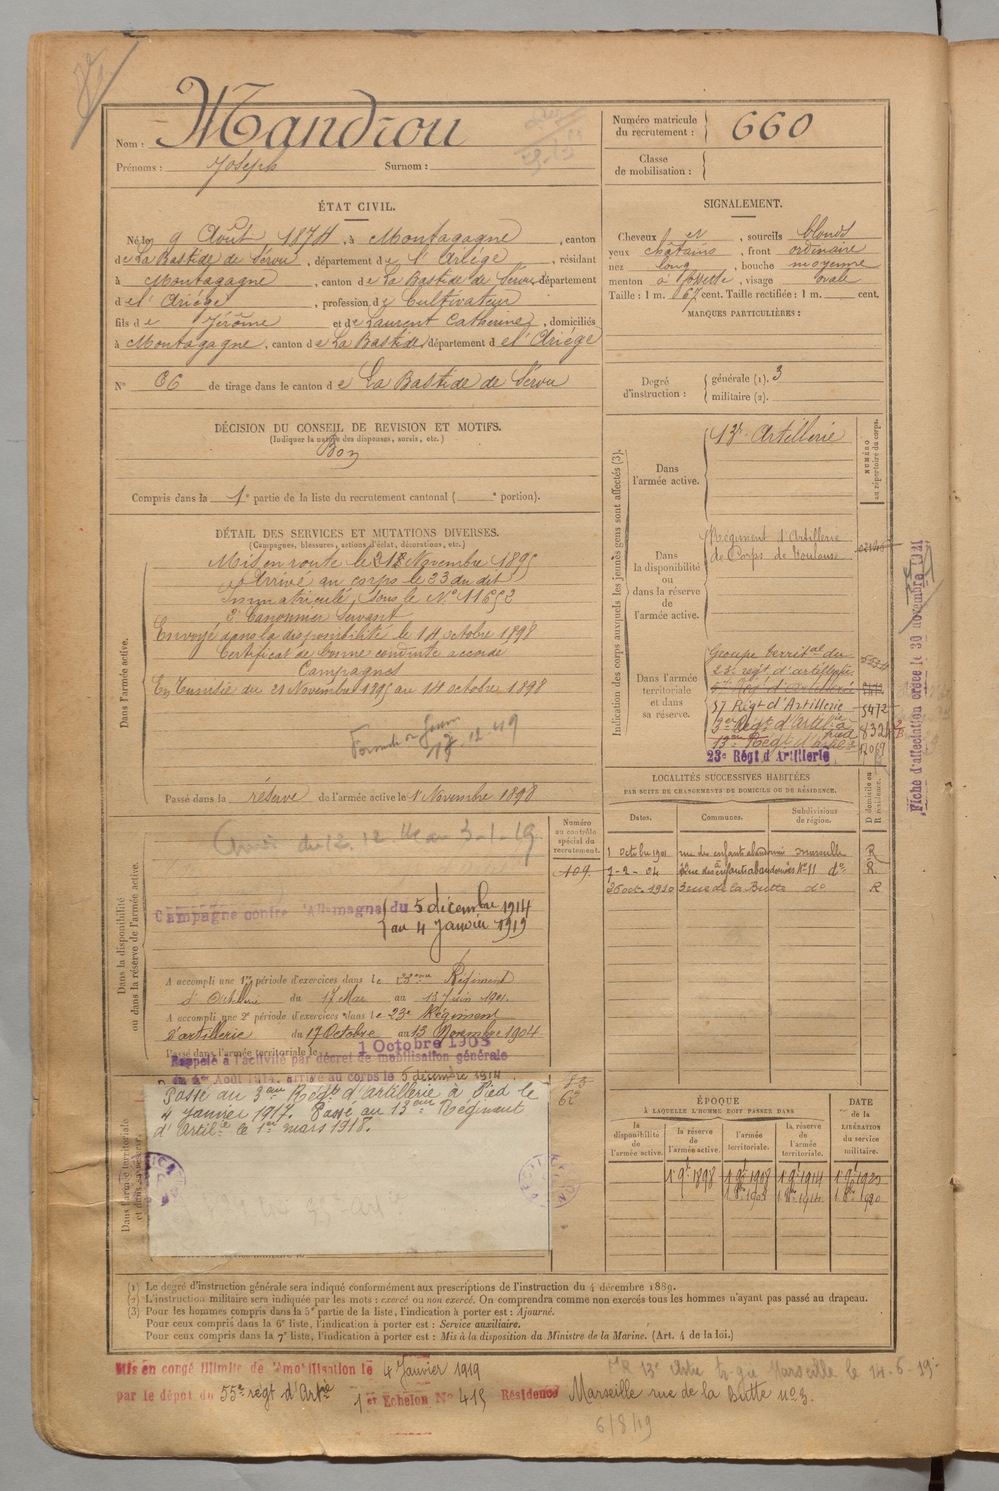 Nom : Mandrou
Prénoms : Joseph Surnom :
Numéro matricule du recrutement : 660
Classe de mobilisation :
ÉTAT CIVIL.
Né le 9 Août 1874, à Montagagne, canton
de La Bastide de Sérou, département de l'Ariége, résidant
à Montagagne, canton de La Bastide de Sérou, département
d e l'Ariége, profession de Cultivateur
fils de Jérôme et de Laurent Catherine, domiciliés
à Montagagne, canton de La Bastide, département de l'Ariége
N° 66 de tirage dans le canton de La Bastide de Sérou
SIGNALEMENT.
Cheveux et, sourcils blonds
yeux châtains, front ordinaire
nez long, bouche moyenne
menton à fossette, visage ovale
Taille : 1 m. 67 cent. Taille rectifiée : 1 m. cent.
MARQUES PARTICULIÈRES :
Degré d'instruction : générale (1). 3
militaire (2).
DÉCISION DU CONSEIL DE REVISION ET MOTIFS.
(Indiquer la nature des dispenses, sursis, etc.)
Bon
Compris dans la 1e partie de la liste du recrutement cantonal ( e portion).
DÉTAIL DES SERVICES ET MUTATIONS DIVERSES.
(Campagnes, blessures, actions d'éclat, décorations, etc.)
Dans l'armée active.
Mis en route le 18 Novembre 1895
Arrivé au corps le 23 du dit
Immatriculé sous le N° 11652
2e Canonnier Servant
Envoyé dans la disponibilité le 14 octobre 1898
Certificat de bonne conduite accordé
Campagnes
En Tunisie du 21 Novembre 1895 au 14 octobre 1898
Passé dans la réserve de l'armée active le 1 Novembre 1898
Indication des corps auxquels les jeunes gens sont affectés (3).
NUMÉRO au répertoire du corps.
Dans l'armée active.
13e Artillerie
Dans la disponibilité ou dans la réserve de l'armée active.
Régiment d'Artillerie
de Corps de Toulouse
Dans l'armée territoriale et dans sa réserve.
Groupe territal du
23e régt d'artillerie
57 Régt d'Artillerie 5472
3eme Régt d'Artilie à pied 8324
13eme Régt d'artie 12069
23e Régt d'Artillerie
Fiche d'affectation créée le 30 novembre 1921
LOCALITÉS SUCCESSIVES HABITÉES
PAR SUITE DE CHANGEMENTS DE DOMICILE OU DE RÉSIDENCE.
D domicile ou R résidence.
Dates. Communes. Subdivisions de région.
1 octobre 1901 rue des enfants abandonnés Marseille R
7-2-04 rue des enfants abandonnés N° 11 do R
26 oct. 1910 3 rue de la Butte do R
Dans la disponibilité ou dans la réserve de l'armée active.
Numéro au contrôle spécial du recrutement.
109
Campagne contre l'Allemagne du 5 décembre 1914
au 4 Janvier 1919
A accompli une 1re période d'exercices dans le 23eme Régiment
d'Artillerie du 17 Mai au 13 Juin 1901.
A accompli une 2e période d'exercices dans le 23e Régiment
d'artillerie du 17 Octobre au 13 Novembre 1904
Passé dans l'armée territoriale le 1 Octobre 1908
Rappelé à l'activité par décret de mobilisation générale
du 1er Août 1914, arrivé au corps le 5 décembre 1914
Dans l'armée territoriale et dans sa réserve.
Passé au 3eme Régt d'artillerie à Pied le
4 janvier 1917. Passé au 13eme Régiment
d'Artilie le 1er mars 1918.
ÉPOQUE
À LAQUELLE L'HOMME DOIT PASSER DANS
la disponibilité de l'armée active. la réserve de l'armée active. l'armée territoriale. la réserve de l'armée territoriale.
DATE de la LIBÉRATION du service militaire.
1 9 1898 1 9 1908 1 9 1914 1 9 1920
(1) Le degré d'instruction générale sera indiqué conformément aux prescriptions de l'instruction du 4 décembre 1889.
(2) L'instruction militaire sera indiquée par les mots : exercé ou non exercé. On comprendra comme non exercés tous les hommes n'ayant pas passé au drapeau.
(3) Pour les hommes compris dans la 5e partie de la liste, l'indication à porter est : Ajourné.
Pour ceux compris dans la 6e liste, l'indication à porter est : Service auxiliaire.
Pour ceux compris dans la 7e liste, l'indication à porter est : Mis à la disposition du Ministre de la Marine. (Art. 4 de la loi.)
Mis en congé illimité de démobilisation le 4 Janvier 1919
par le dépôt du 55e régt d'Artie 1er Echelon N° 415 Résidence Marseille rue de la Butte n° 3.
6/8/19